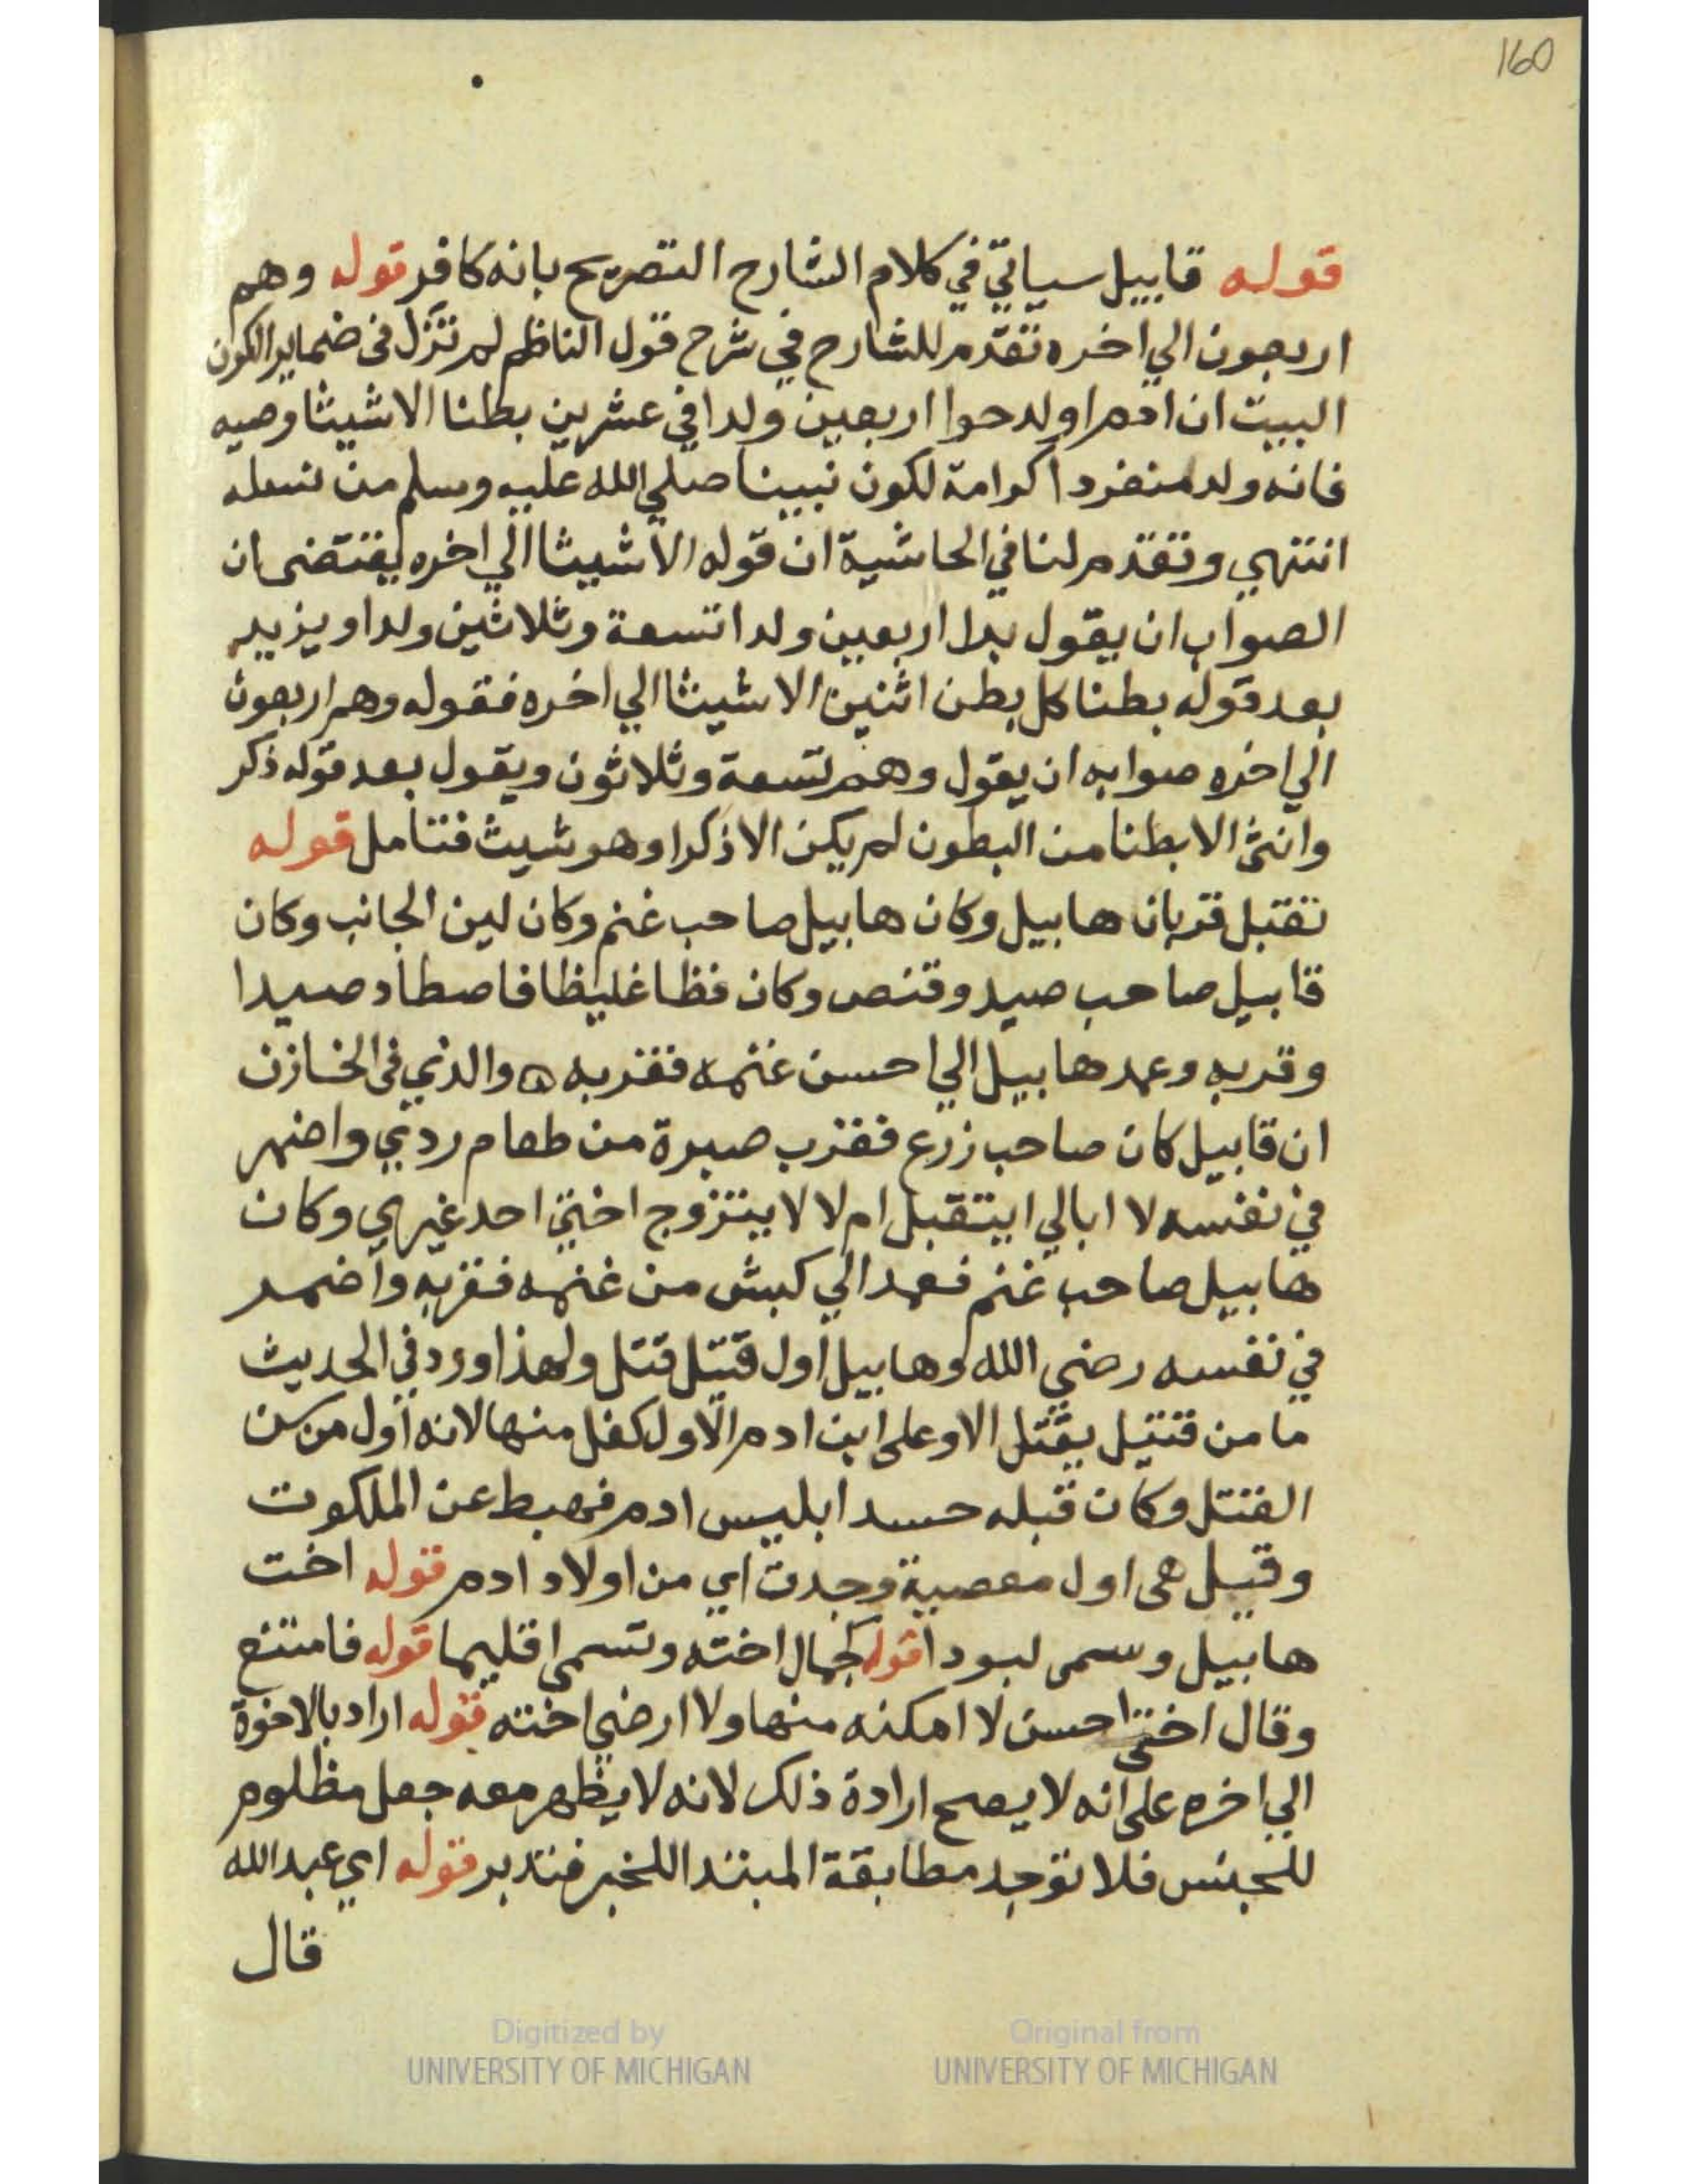 160
قوله قابيل سياتي في كلام الشارح التصريح بانه كافر قوله وهم
اربعون الي اخره تقدم للشارح في شرح قول الناظم لم تزل في ضماير الكون
البيت ان ادم اولد حوا اربعين ولدا في عشرين بطنا الا شيثا وصيه
فانه ولد منفردا كرامة لكون نبينا صلي الله عليه وسلم من نسله
انتهي وتقدم لنا في الحاشية ان قوله الا شيثا الي اخره يقتضى ان
الصواب ان يقول بدل اربعين ولدا تسعة وثلاثين ولدا ويزيد
بعد قوله بطنا كل بطن اثنين الا شيثا الي اخره فقوله وهم اربعون
الي اخره صوابه ان يقول وهم تسعة وثلاثون ويقول بعد قوله ذكر
وانثى الا بطنا من البطون لم يكن الا ذكرا وهو شيث فتامل قوله
تقبل قربان هابيل وكان هابيل صاحب غنم وكان لين الجانب وكان
قابيل صاحب صيد وقنص وكان فظا غليظا فاصطاد صيدا
وقربه وعمد هابيل الي احسن غنمه فقربه ه والذي في الخازن
ان قابيل كان صاحب زرع فقرب صبرة من طعام ردي واضمر
في نفسه لا ابالي ايتقبل ام لا لا يتزوج اختي احد غيري وكان
هابيل صاحب غنم فعمد الي كبش من غنمه فقربه واضمر
في نفسه رضي الله وهابيل اول قتيل قتل ولهذا ورد في الحديث
ما من قتيل يقتل الا وعلى ابن ادم الاول كفل منها لانه اول من سن
القتل وكان قبله حسد ابليس ادم فهبط عن الملكوت
وقيل هى اول معصية وجدت اي من اولاد ادم قوله اخت
هابيل وسمى لبودا قوله لجمال اخته وتسمى اقليما قوله فامتنع
وقال اختى احسن لا امكنه منها ولا ارضي اخته قوله اراد بالاخوة
الي اخره على انه لا يصح ارادة ذلك لانه لا يظهر معه جعل مظلوم
للجنس فلا توجد مطابقة المبتدا للخبر فتدبر قوله اي عبد الله
قال
Digitized by
UNIVERSITY OF MICHIGAN
Original from
UNIVERSITY OF MICHIGAN